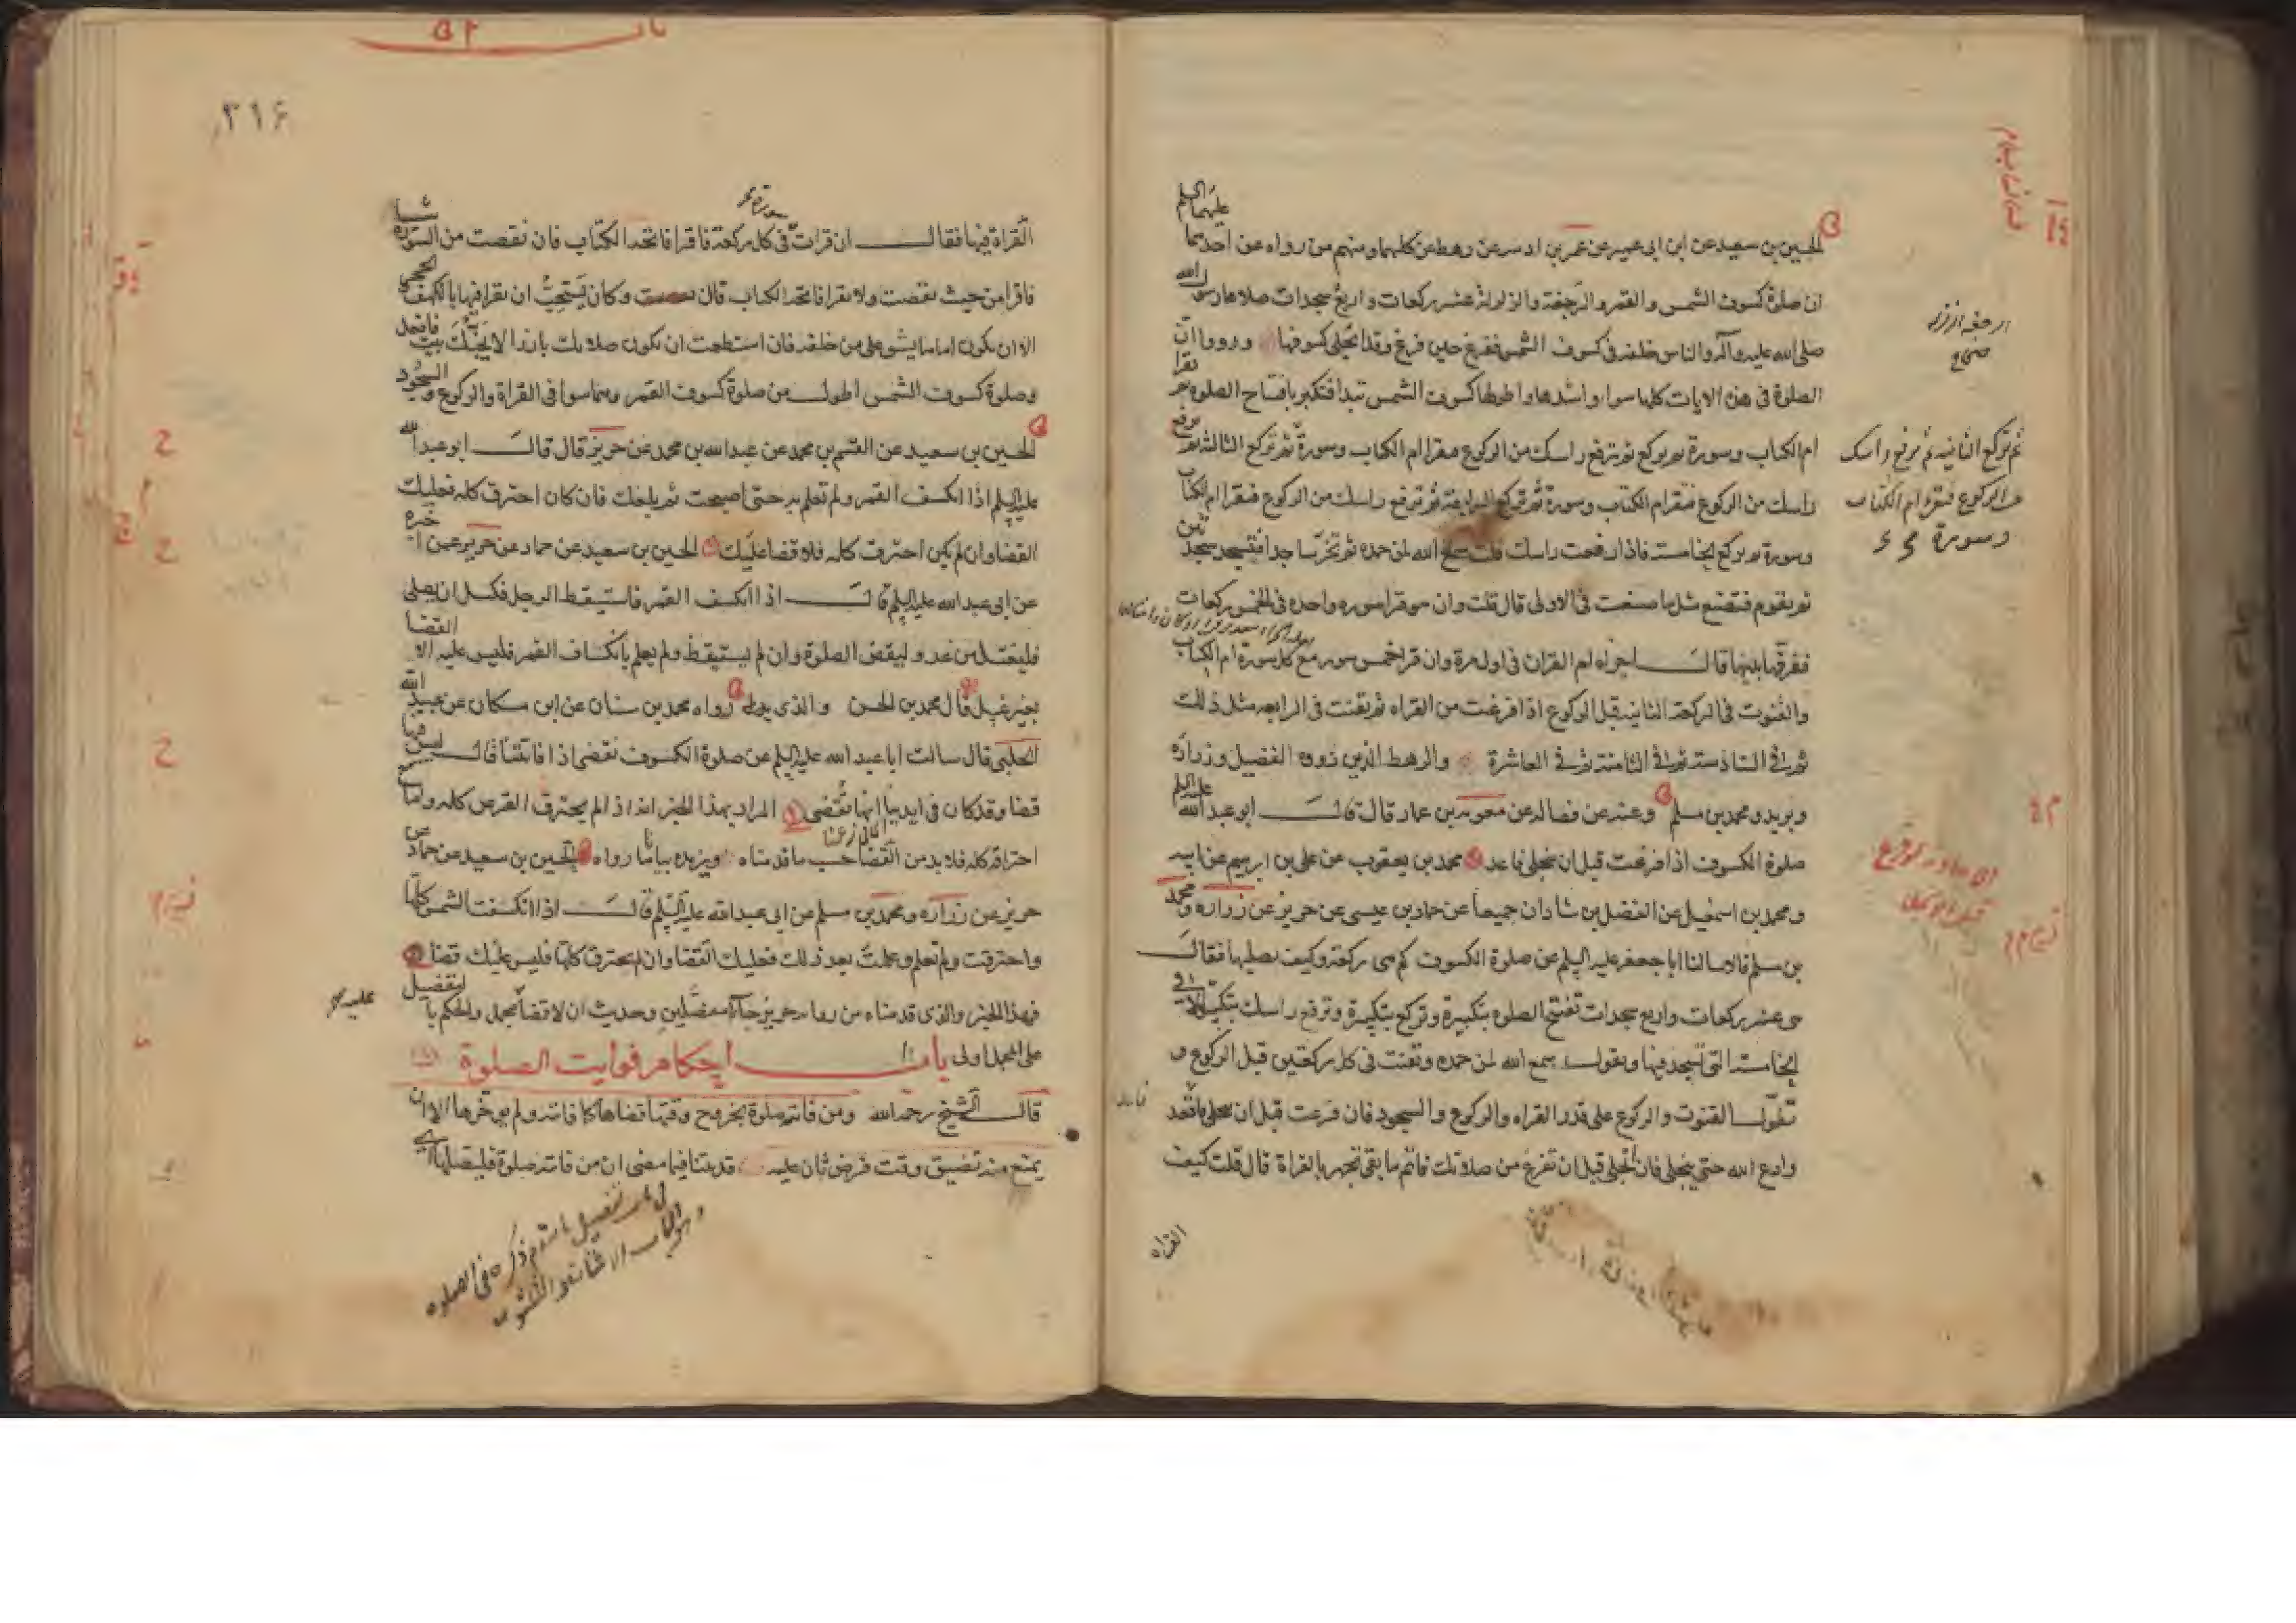 الحسين بن سعيد عن ابن ابى عمير عن عمر بن اذينه عن رهط عن كليهما ومنهم من رواه عن احدهما
عليهما السلم
ان صلوة كسوف الشمس والقمر والرجفة والزلزلة عشر ركعات واربع سجدات صلاها رسول الله
صلى الله عليه وآله والناس خلفه فى كسوف الشمس ففرغ حين فرغ وقد انجلى كسوفها ورووا ان
الصلوة فى هذه الايات كلها سواء واشدها واطولها كسوف الشمس تبدا فتكبر بافتتاح الصلوة ثم تقرا
ام الكتاب وسورة ثم تركع ثم ترفع راسك من الركوع فتقرا ام الكتاب وسورة ثم تركع الثالثة ثم ترفع
راسك من الركوع فتقرا ام الكتاب وسورة ثم تركع الرابعة ثم ترفع راسك من الركوع فتقرا ام الكتاب
وسورة ثم تركع الخامسة فاذا رفعت راسك قلت سمع الله لمن حمده ثم تخر ساجدا فتسجد سجدتين
ثم تقوم فتصنع مثل ما صنعت فى الاولى قال قلت وان هو قرا سورة واحده فى الخمس ركعات
ففرقها بينها قال اجزاه ام القران فى اول مرة وان قرا خمس سور مع كل سورة ام الكتاب
والقنوت فى الركعة الثانية قبل الركوع اذا فرغت من القراه ثم تقنت فى الرابعه مثل ذلك
ثم فى السادسة ثم فى الثامنة ثم فى العاشرة والرهط الذين رووه الفضيل وزرارة
وبريد ومحمد بن مسلم وعنه عن فضاله عن معوية بن عمار قال قال ابو عبد الله عليه السلم
صلوة الكسوف اذا فرغت قبل ان ينجلى فاعد محمد بن يعقوب عن على بن ابرهيم عن ابيه
ومحمد بن اسمعيل عن الفضل بن شاذان جميعا عن حماد بن عيسى عن حريز عن زرارة ومحمد
بن مسلم قالا سالنا ابا جعفر عليه السلم عن صلوة الكسوف كم هى ركعة وكيف نصليها فقال
هى عشر ركعات واربع سجدات تفتتح الصلوة بتكبيرة وتركع بتكبيرة وترفع راسك بتكبيرة الا فى
الخامسة التى تسجد فيها وتقول سمع الله لمن حمده وتقنت فى كل ركعتين قبل الركوع و
تطول القنوت والركوع على قدر القراه والركوع والسجود فان فرغت قبل ان ينجلى فاقعد
وادع الله حتى ينجلى فان انجلى قبل ان تفرغ من صلاتك فاتم ما بقى تجهر بالقراة قال قلت كيف
القراه
ثم تركع الثانيه ثم ترفع راسك
من الركوع فتقرا ام الكتاب
وسورة
٣١۶
القراة فيها فقال ان قرات سورة فى كل ركعة فاقرا فاتحة الكتاب فان نقصت من السورة شيا
فاقرا من حيث نقصت ولا تقرا فاتحة الكتاب قال وكان يستحب ان نقرا فيها بالكهف والحجر
الا ان يكون اماما يشق على من خلفه فان استطعت ان يكون صلاتك بارزا لا يجنك بيت فافعل
وصلوة كسوف الشمس اطول من صلوة كسوف القمر وهما سوا فى القراة والركوع والسجود
الحسين بن سعيد عن القسم بن محمد عن عبد الله بن محمد عن حريز قال قال ابو عبد الله
عليه السلم اذا انكسف القمر ولم تعلم به حتى اصبحت ثم بلغك فان كان احترق كله فعليك
القضا وان لم يكن احترق كله فلا قضا عليك الحسين بن سعيد عن حماد عن حريز عمن اخبره
عن ابى عبد الله عليه السلم قال اذا انكسف القمر فاستيقظ الرجل فكسل ان يصلى
فليغتسل من غد وليقض الصلوة وان لم يستيقظ ولم يعلم بانكساف القمر فليس عليه الا القضا
بغير غسل قال محمد بن الحسن والذى رواه محمد بن سنان عن ابن مسكان عن عبيد الله
الحلبى قال سالت ابا عبد الله عليه السلم عن صلوة الكسوف نقضى اذا فاتتنا قال ليس فيها
قضا وقد كان فى ايدينا انها تقضى المراد بهذا الخبر انه اذا لم يحترق القرص كله واما مع
احتراقه كله فلا بد من القضا حسب ما قدمناه ويزيده بيانا ما رواه الحسين بن سعيد عن حماد عن
حريز عن زرارة ومحمد بن مسلم عن ابى عبد الله عليه السلم قال اذا انكسفت الشمس كلها
واحترقت ولم تعلم وعلمت بعد ذلك فعليك القضا وان لم يحترق كلها فليس عليك قضا
فهذا الخبر والذى قدمناه من رواية حريز جاآ مفصلين وحديث ان لا قضا مجمل والحكم بالتفصيل
على المجمل اولى باب احكام فوايت الصلوة
قال الشيخ رحمه الله ومن فاتته صلوة بخروج وقتها قضاها كما فاتته ولم يؤخرها الا ان
يمنع منه تضيق وقت فرض ثان عليه قد بينا فيما مضى ان من فاتته صلوة فليصلها اى